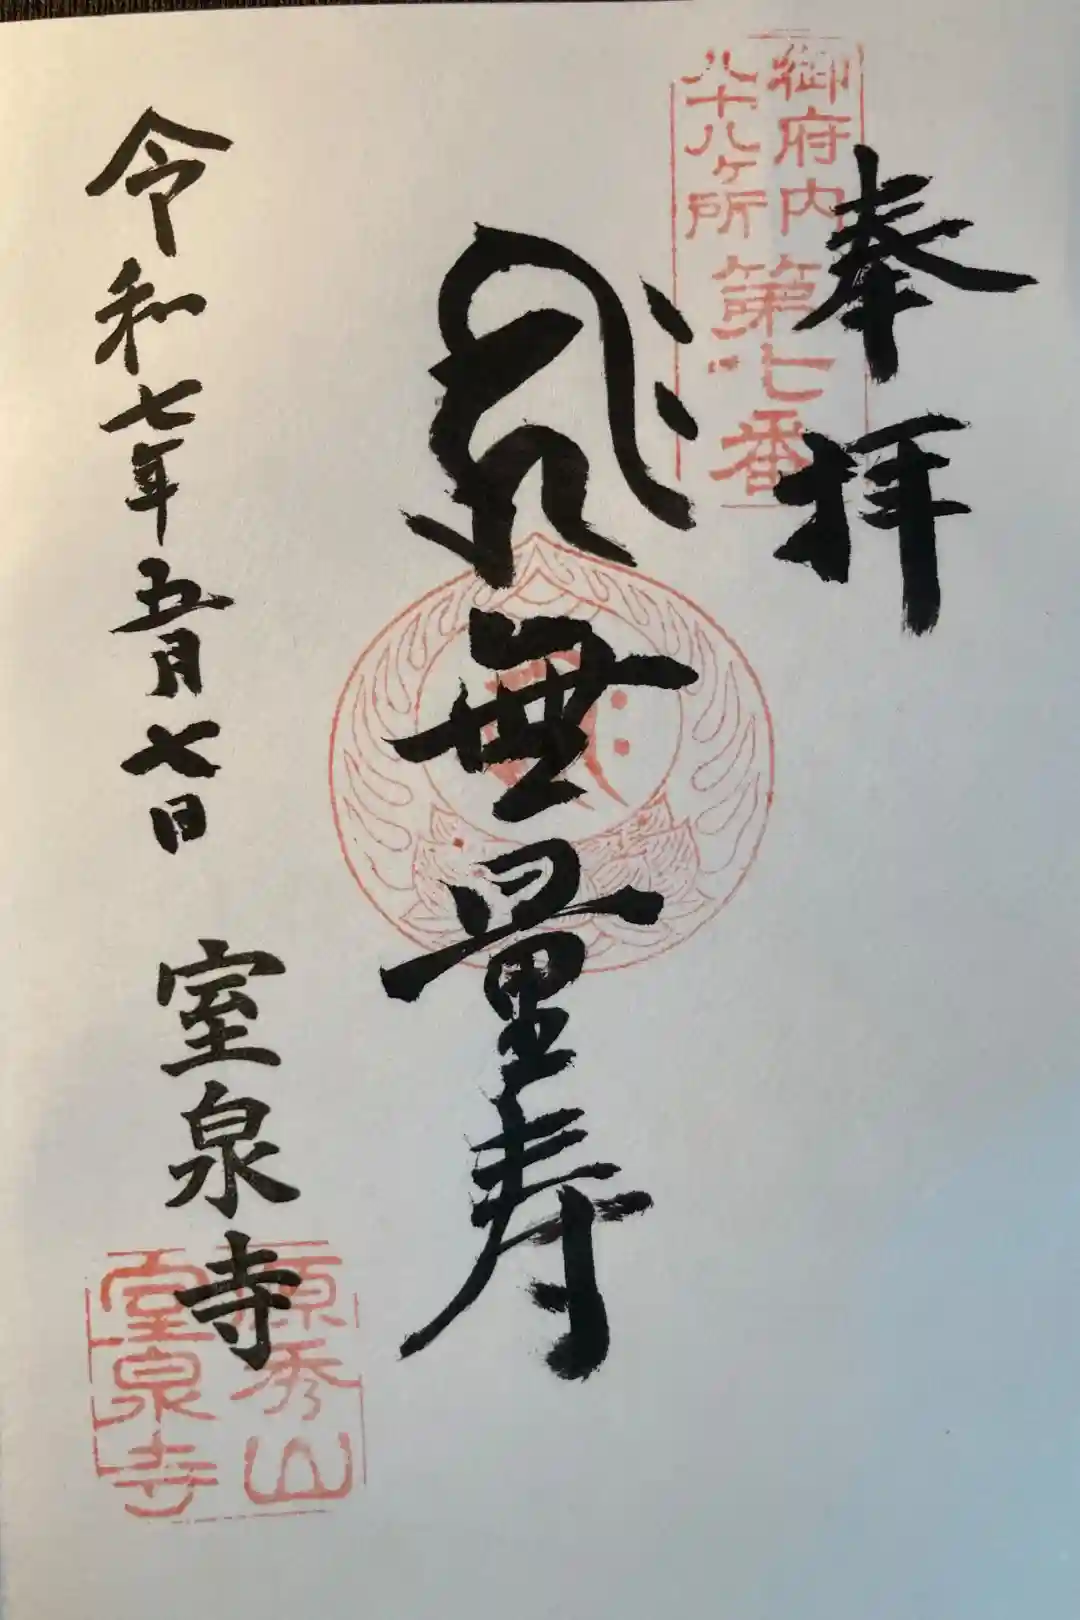 奉拝
御府内
八十八ヶ所
第七番
𑖮𑖿𑖨𑖱𑖾
無量寿
令和七年五月七日
室泉寺
源秀山
室泉寺